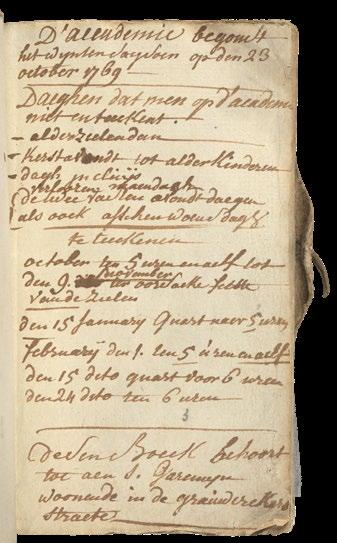 D'academie begomt
het wynter saysoen op den 23
october 1769
Daeghen dat men op d'academi
niet en teeckent.
- alderzielendan
- kersta vondt tot alder kinderen
- dagh
verloren maendagh
de twee vasten avondt daegen
als oock asschen woensdagh
te teeckenen
october ten 5 uren en alf tot
den 9. november
van de zielen
den 15 january quart naer 5 uren
february den 1. ten 5 uren en alf
den 15 dito quart voor 6 uren
den 24 dito ten 6 uren
Desen Boeck behoort
toe aen J. Garemyn
woonende in de
straete